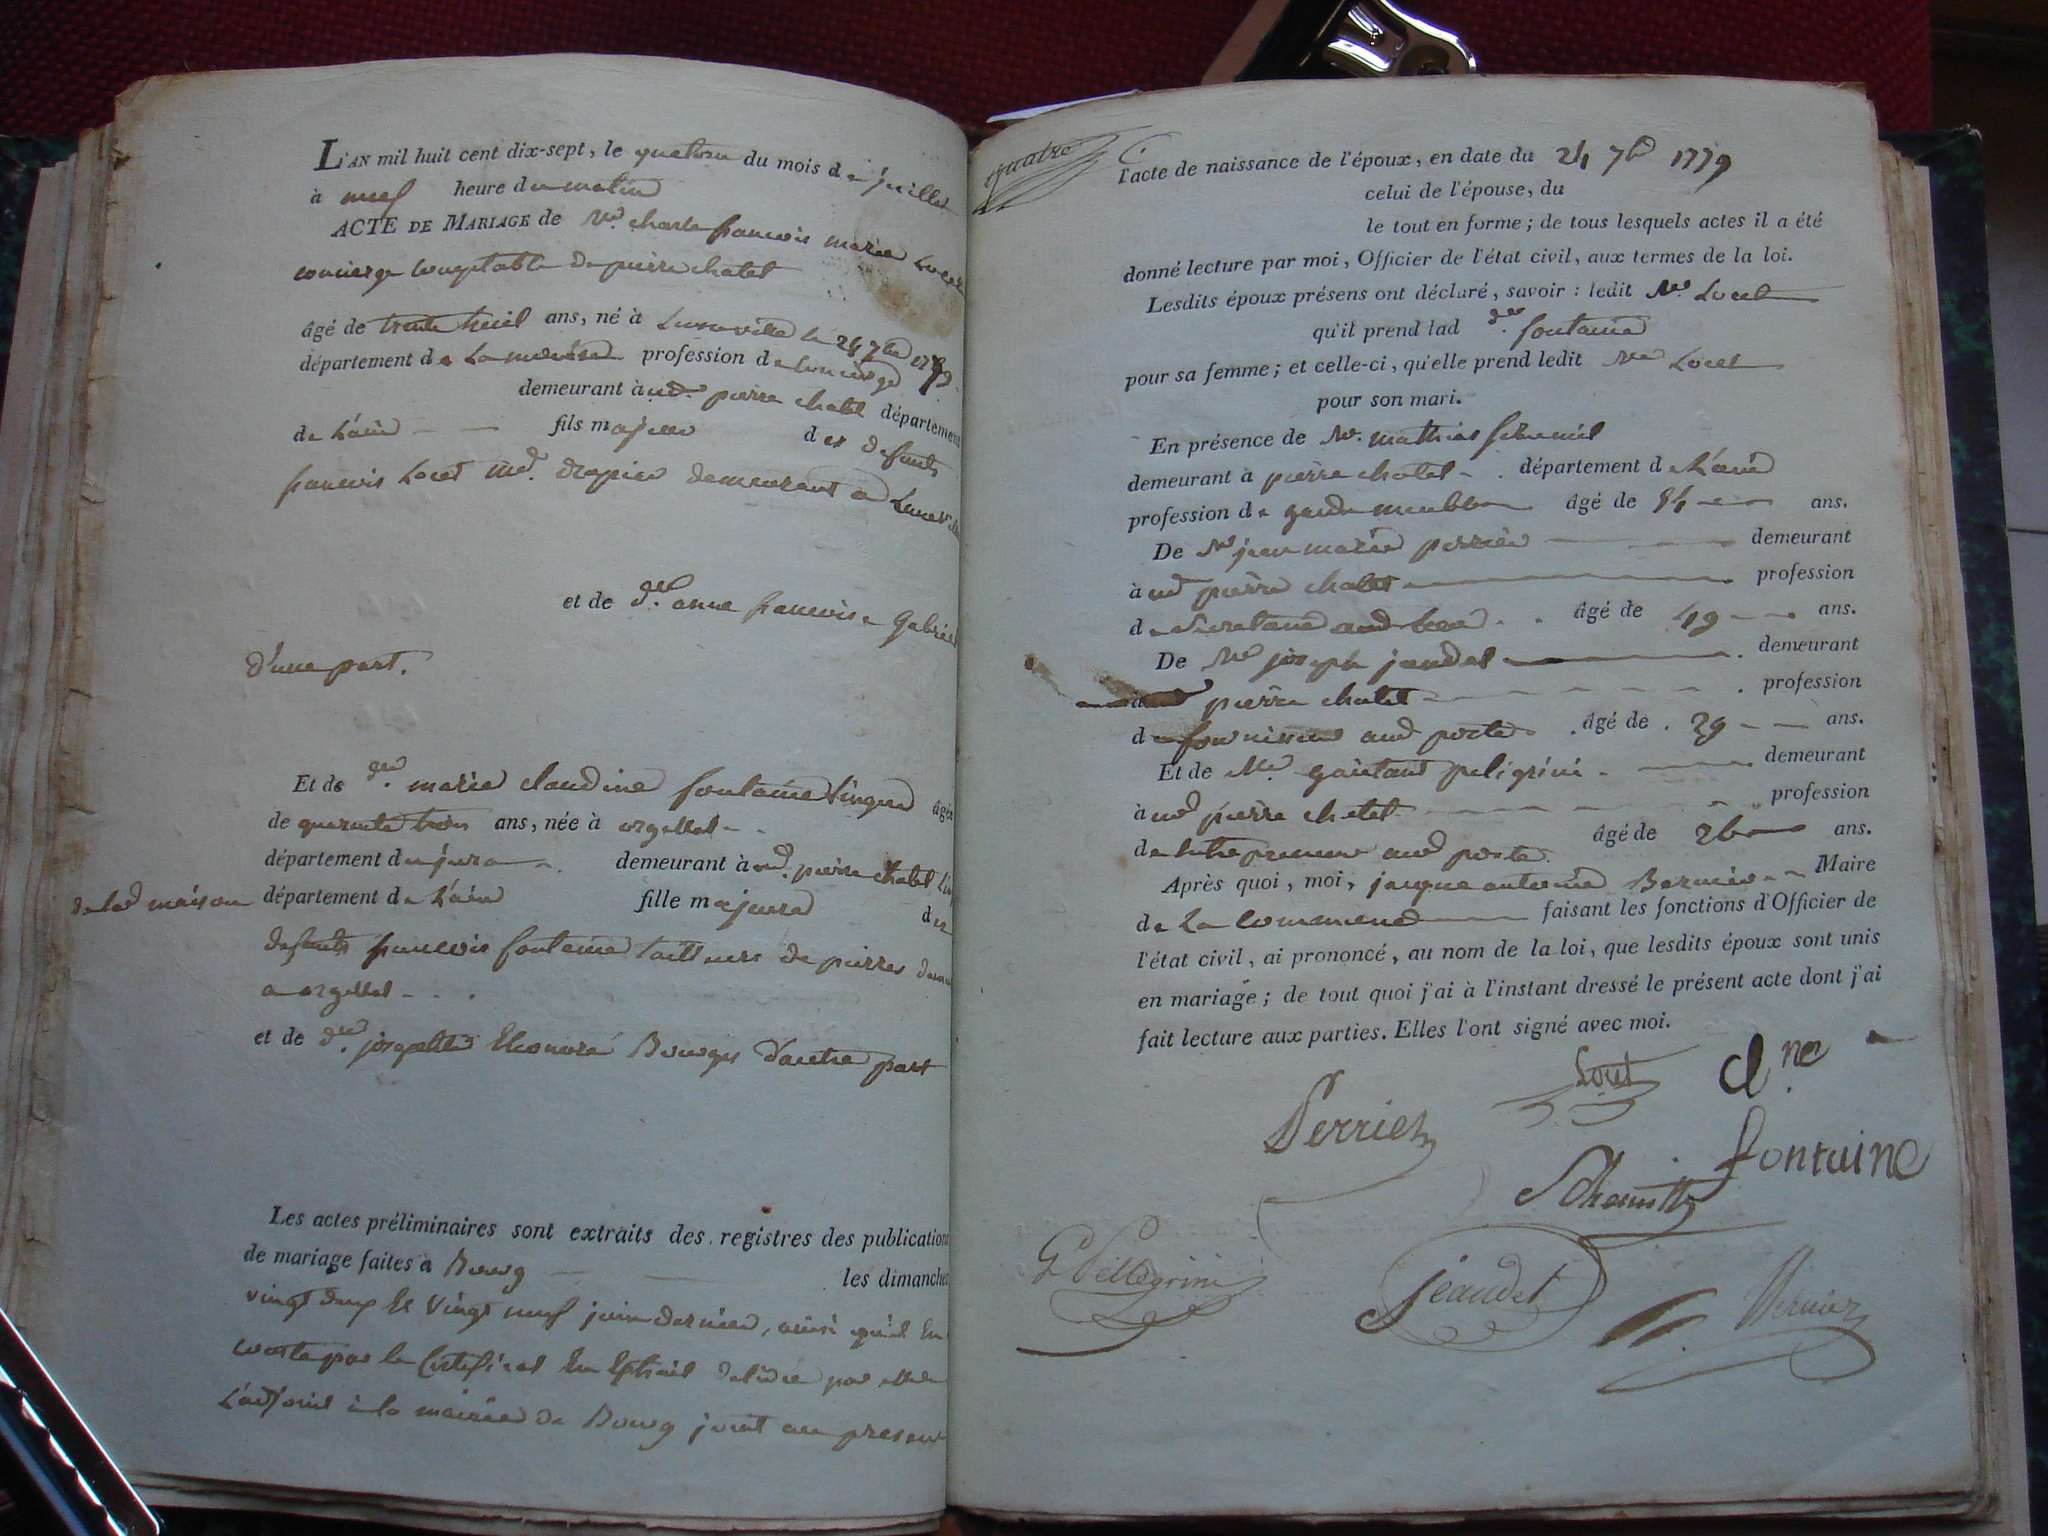 L'AN mil huit cent dix-sept, le quatorze du mois de juillet
à neuf heure du matin
ACTE DE MARIAGE de Mr. charle francois marie Locet
concierge comptable de pierre chatel
âgé de trente huit ans, né à Luneville le 24 7bre 1779.
département de La meurthe profession de concierge
demeurant à aud. pierre chatel département
de L'ain fils majeur des defunts
francois Locet md. drapier demeurant a Luneville
et de de. anne francoise Gabriel
d'une part.
Et de dlle. marie claudine fontaine lingere âgée
de quarante trois ans, née à orgellet
département du jura demeurant à aud. pierre chatel
de lad maison département de L'ain fille majeure des
defunts francois fontaine tailleurs de pierres
a orgellet
et de de. josephte Eleonore Bourges d'autre part
Les actes préliminaires sont extraits des registres des publications
de mariage faites à Bourg les dimanches
vingt deux et vingt neuf juin dernier, ainsi qu'il en
conste par le certificat en Extrait delivré par
L'adjoint à la mairie de Bourg joint au present
quatre
l'acte de naissance de l'époux, en date du 24 7bre 1779
celui de l'épouse, du
le tout en forme; de tous lesquels actes il a été
donné lecture par moi, Officier de l'état civil, aux termes de la loi.
Lesdits époux présens ont déclaré, savoir: ledit Mr. Locet
qu'il prend lad dlle. fontaine
pour sa femme; et celle-ci, qu'elle prend ledit Mr Locet
pour son mari.
En présence de Mr. mathias
demeurant à pierre chatel département de L'ain
profession de garde meubles âgé de 54 ans.
De Mr jean marie perrier demeurant
à aud pierre chatel profession
de Secretaire aud lieu âgé de 49 ans.
De Mr joseph jeaudet demeurant
à aud pierre chatel profession
de fournisseur aud poste âgé de 29 ans.
Et de Mr. gaietant peligrini demeurant
à aud pierre chatel profession
de entrepreneur aud poste âgé de 26 ans.
Après quoi, moi, jacque antoine Bernier Maire
de La commune faisant les fonctions d'Officier de
l'état civil, ai prononcé, au nom de la loi, que lesdits époux sont unis
en mariage; de tout quoi j'ai à l'instant dressé le présent acte dont j'ai
fait lecture aux parties. Elles l'ont signé avec moi.
Locet Cl.ne
Perrier fontaine
G Pellegrini Jeaudet Bernier